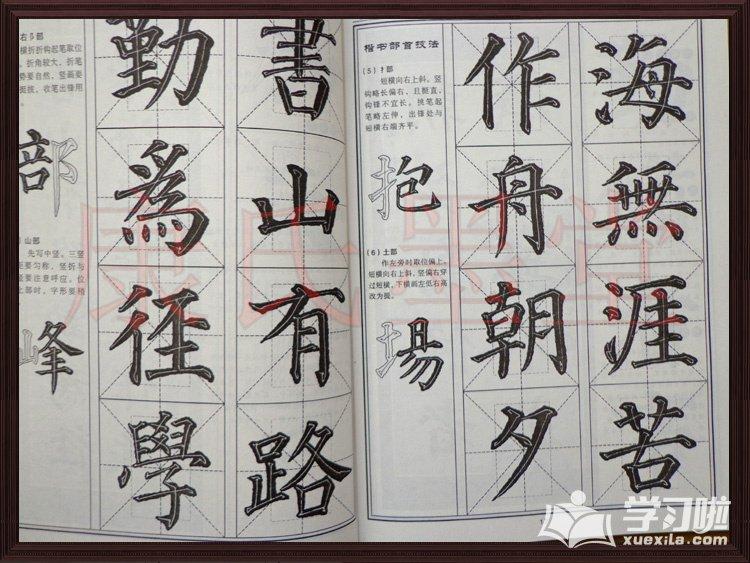 右阝部
横折折钩起笔取位
，折角较大，折笔
势要自然，竖画要
挺拔，收笔出锋用
部
山部
先写中竖。三竖
距要匀称，竖折与
竖要注意呼应。位
部时，字形要稍
峰
書山有路
勤爲徑學
楷书部首技法
(5) 扌部
短横向右上斜。竖
钩略长偏右，且挺直，
钩锋不宜长。挑笔起
笔略左伸，出锋处与
短横右端齐平。
抱
(6) 土部
作左旁时取位偏上。
短横向右上斜，竖偏右穿
过短横，下横画左低右高
改为提。
場
海無涯苦
作舟朝夕
康氏墨堂
学习啦
xuexila.com